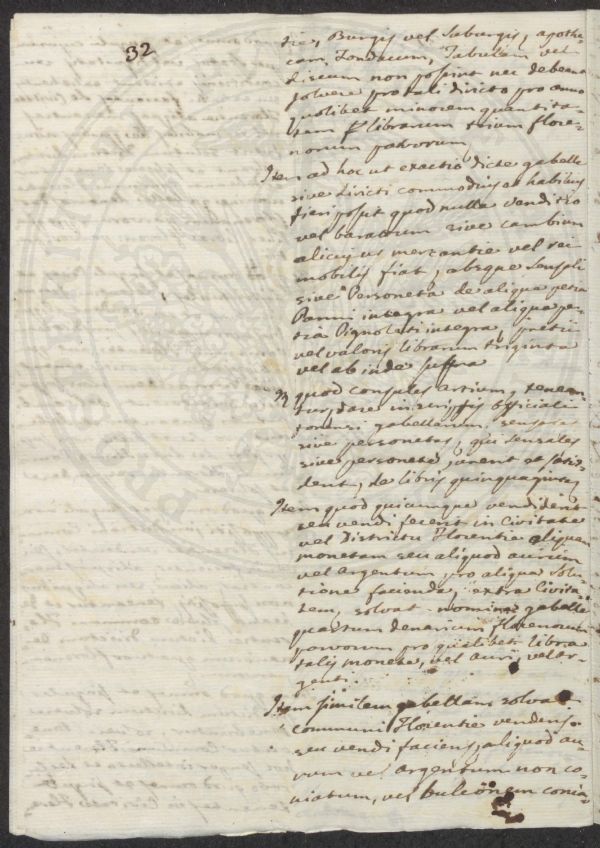 32
tris, Burgis vel Suburgis, apothe-
cam, Fondacum, Tabulam vel
Discum non possint nec debeant
solvere pro tali diricto pro anno
quolibet minorem quantita-
tem librarum trium flore-
norum parvorum
Item ad hoc ut exactio dicte gabelle
sive Diricti commodius et habilius
fieri possit quod nulla venditio
vel baratum sive cambium
alicujus mercantie vel rei
mobilis fiat, absque Sensali
sive Personeta de aliqua petia
Panni integra vel aliqua pe-
tia Pignolati integra, pretii
vel valoris librarum triginta
vel ab inde supra
Itm quod consules Artium, tenean-
tur, dare in scriptis officiali
forensi gabellarum sensales
sive personetas, qui sensales
sive personete, jurent et sati-
dent, de libris quinquaginta
Item quod quicunque vendiderit
seu vendi fecerit in Civitate
vel Districtu Florentie aliquam
monetam seu aliquod aurum
vel Argentum pro aliqua solu-
tione facienda, extra Civita-
tem, solvat nomine gabelle
quartum denarium florenorum
parvorum pro qualibet libra
talis monete, vel auri, vel ar-
genti.
Item similem gabellam solvat
communi Florentie vendens
seu vendi faciens, aliquod au-
rum vel argentum non co-
niatum, vel bulcionem conia-